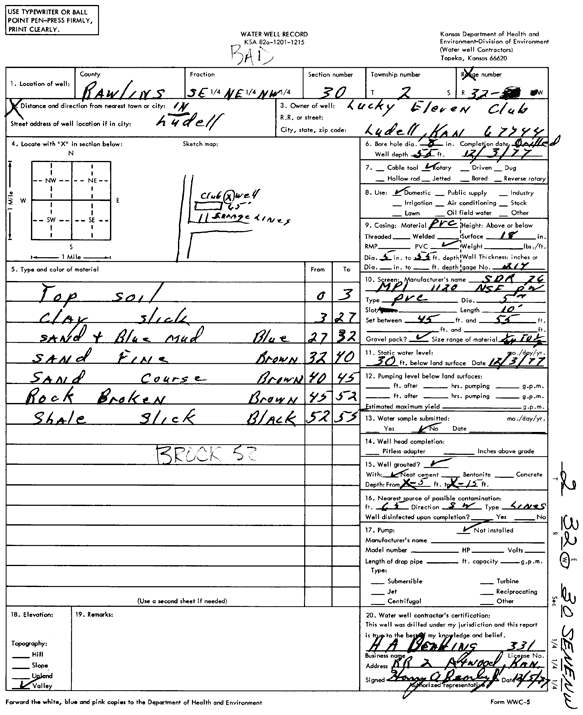 USE TYPEWRITER OR BALL
POINT PEN-PRESS FIRMLY,
PRINT CLEARLY.
WATER WELL RECORD
KSA 82a-1201-1215
BAD
Kansas Department of Health and
Environment-Division of Environment
(Water well Contractors)
Topeka, Kansas 66620
1. Location of well: County Rawlins Fraction SE 1/4 NE 1/4 NW 1/4 Section number 30 Township number T 2 S Range number R 32 W
X Distance and direction from nearest town or city: IN
Street address of well location if in city: Ludell
3. Owner of well: Lucky Eleven Club
R.R. or street:
City, state, zip code: Ludell, KAN 67744
4. Locate with "X" in section below:
Sketch map:
N
NW NE
W E
SW SE
S
1 Mile
1 Mile
Club X well
65'
Sewage Lines
6. Bore hole dia. 8 in. Completion date Drilled
Well depth 55 ft. 12/3/77
7. Cable tool ✓ Rotary Driven Dug
Hollow rod Jetted Bored Reverse rotary
8. Use: ✓ Domestic Public supply Industry
Irrigation Air conditioning Stock
Lawn Oil field water Other
9. Casing: Material PVC Height: Above or below
Threaded Welded Surface 18 in.
RMP PVC ✓ Weight lbs./ft.
Dia. 5 in. to 55 ft. depth Wall Thickness: inches or
Dia. in. to ft. depth gage No. .214
10. Screen: Manufacturer's name SDR 26
MPI 1120 NSF PW
Type PVC Dia. 5"
Slot/ Length 10'
Set between 45 ft. and 55 ft.
ft. and ft.
Gravel pack? ✓ Size range of material
5. Type and color of material From To
Top Soil 0 3
Clay Slick 3 27
Sand + Blue Mud Blue 27 32
Sand Fine Brown 32 40
Sand Course Brown 40 45
Rock Broken Brown 45 52
Shale Slick Black 52 55
BROCK 52
(Use a second sheet if needed)
11. Static water level: mo./day/yr.
30 ft. below land surface Date 12/3/77
12. Pumping level below land surfaces:
ft. after hrs. pumping g.p.m.
ft. after hrs. pumping g.p.m.
Estimated maximum yield g.p.m.
13. Water sample submitted: mo./day/yr.
Yes ✓ No Date
14. Well head completion:
Pitless adapter Inches above grade
15. Well grouted? ✓
With: ✓ Neat cement Bentonite Concrete
Depth: From X-5 ft. to X-15 ft.
16. Nearest source of possible contamination:
ft. 65 Direction SW Type Lines
Well disinfected upon completion? Yes No
17. Pump: ✓ Not installed
Manufacturer's name
Model number HP Volts
Length of drop pipe ft. capacity g.p.m.
Type:
Submersible Turbine
Jet Reciprocating
Centrifugal Other
18. Elevation:
Topography:
Hill
Slope
Upland
✓ Valley
19. Remarks:
20. Water well contractor's certification:
This well was drilled under my jurisdiction and this report
is true to the best of my knowledge and belief.
Business name License No. 331
Address RR 2 Atwood, Kan.
Signed Date 12/5/77
Authorized representative
T 2 R 32 E W Sec 30 SE NE NW
1/4 1/4 1/4
Forward the white, blue and pink copies to the Department of Health and Environment
Form WWC-5